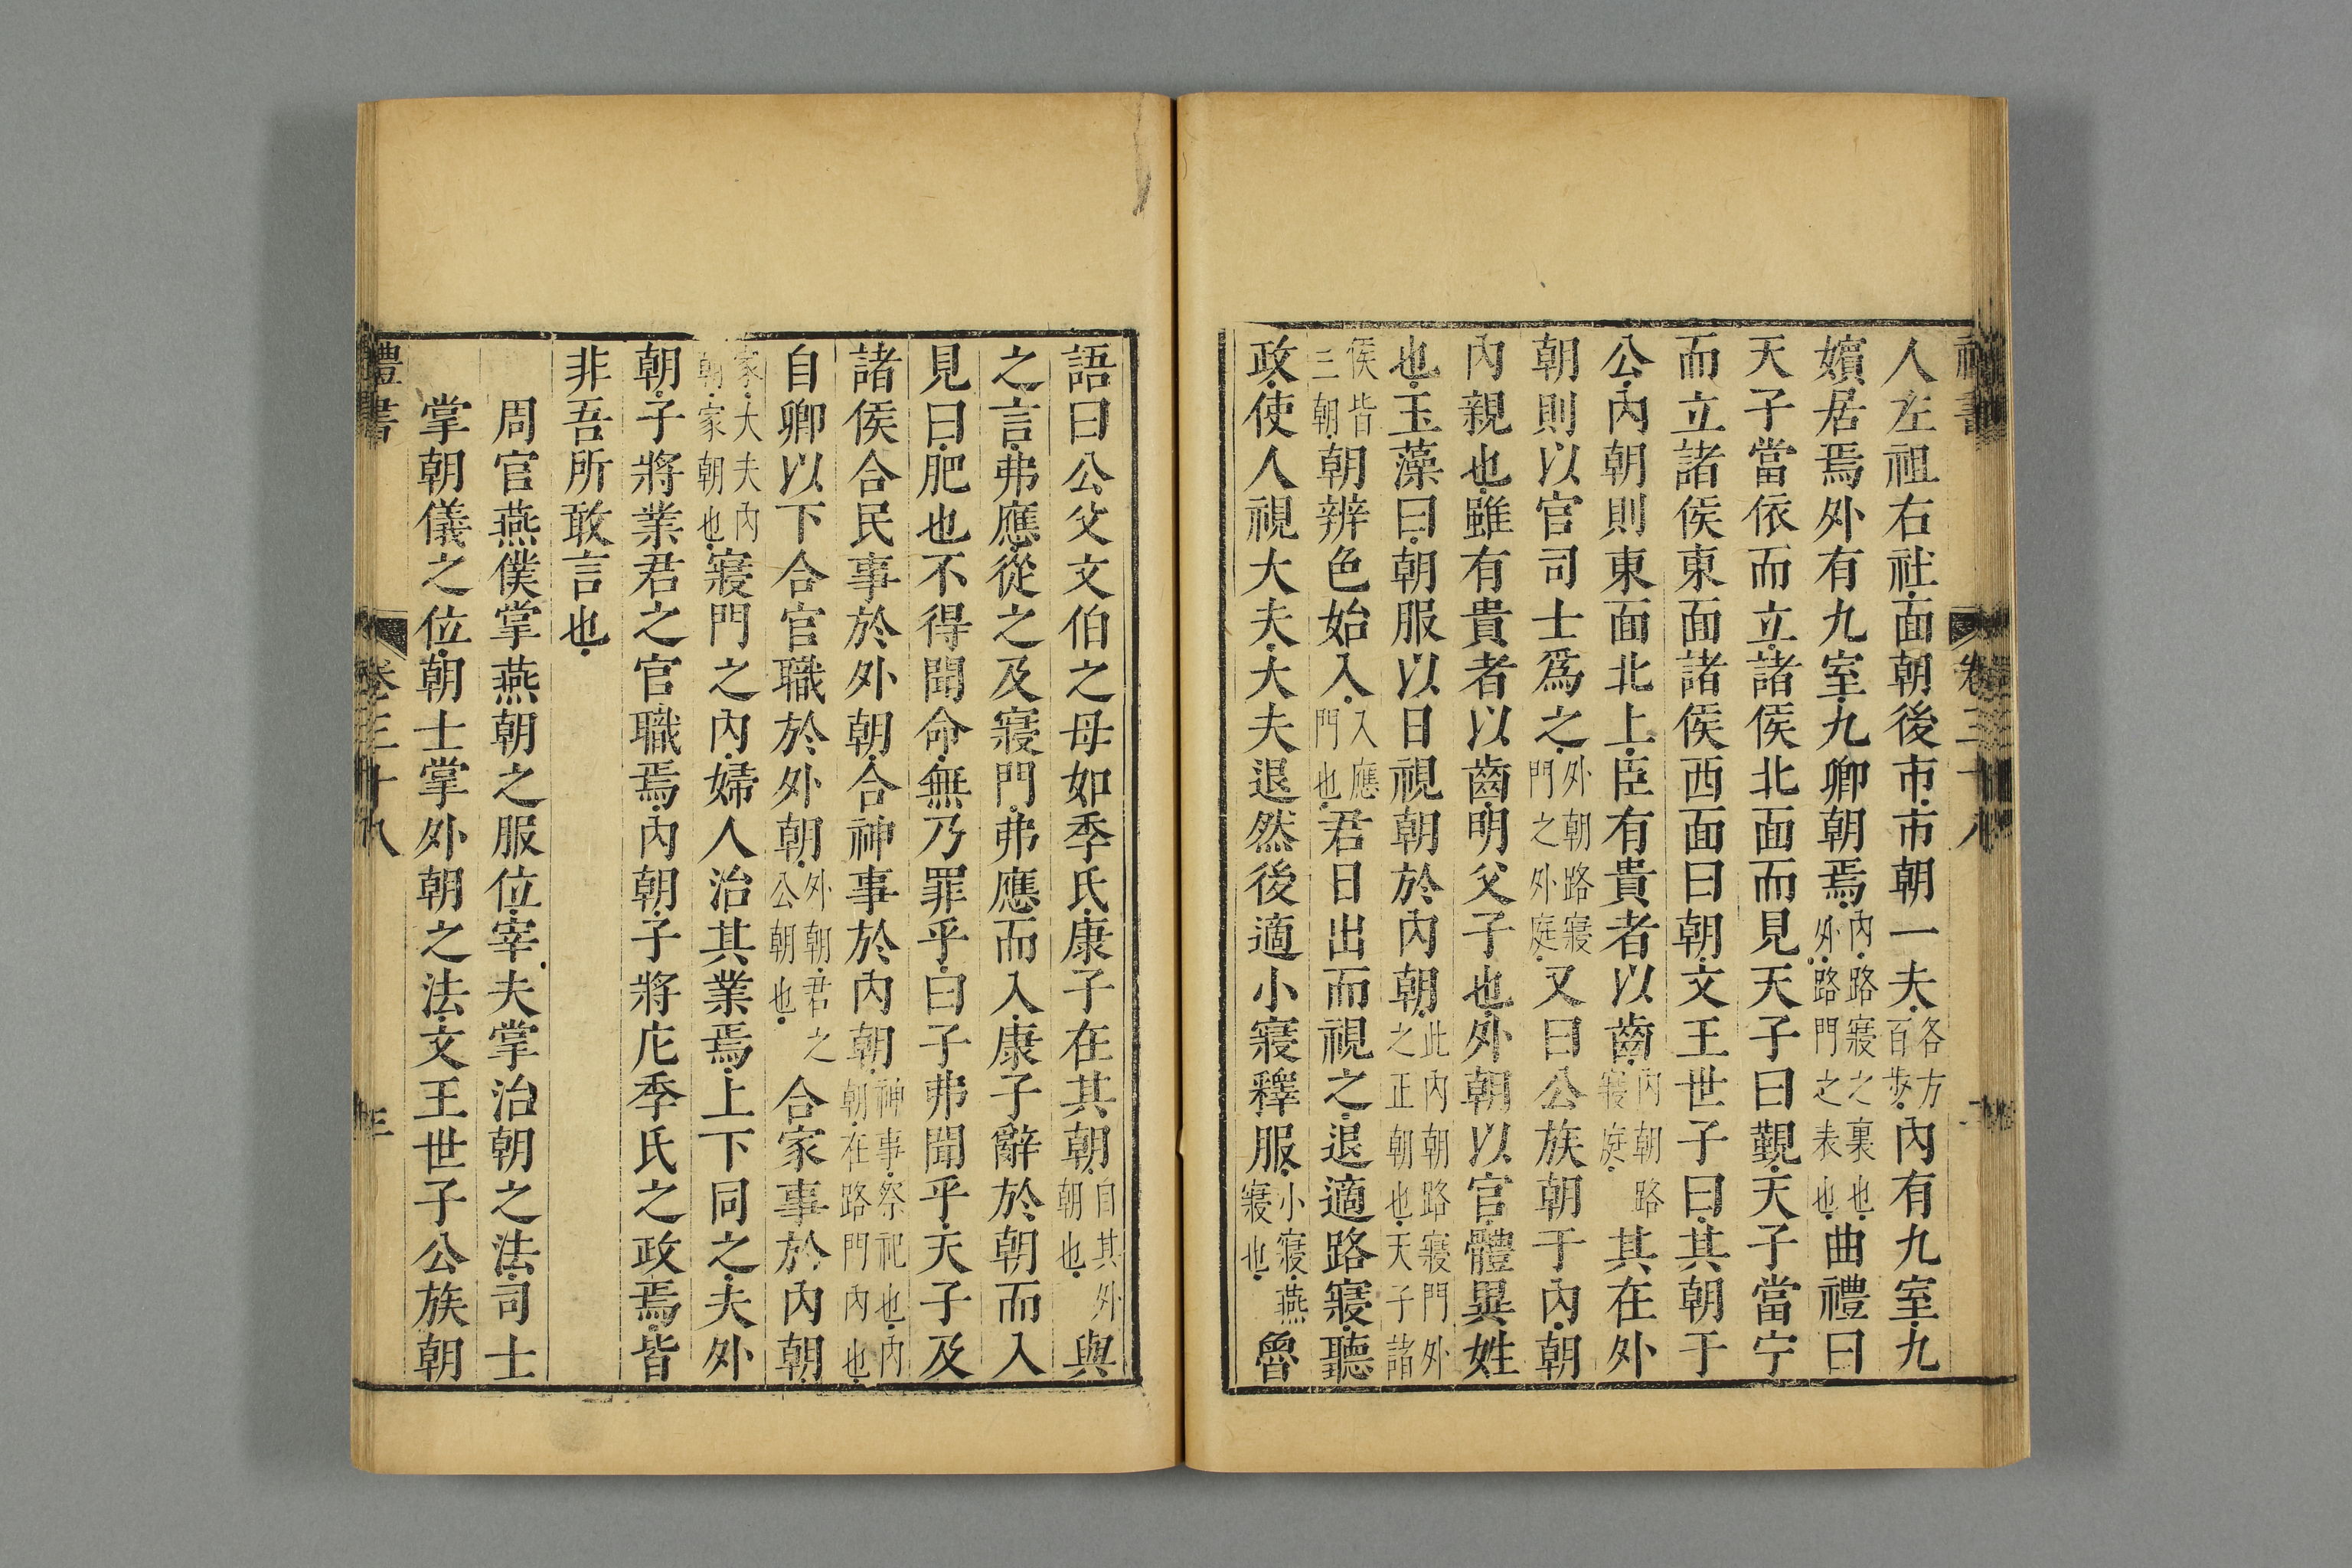 人左祖右社面朝後市市朝一夫各方百步內有九室九
嬪居焉外有九室九卿朝焉內路寢之裏也外路門之表也曲禮曰
天子當依而立諸侯北面而見天子曰覲天子當宁
而立諸侯東面諸侯西面曰朝文王世子曰其朝于
公內朝則東面北上臣有貴者以齒內朝路寢庭其在外
朝則以官司士爲之外朝路寢門之外庭又曰公族朝于內朝
內親也雖有貴者以齒明父子也外朝以官體異姓
也玉藻曰朝服以日視朝於內朝此內朝路寢門外之正朝也天子諸
侯皆三朝朝辨色始入入應門也君日出而視之退適路寢聽
政使人視大夫大夫退然後適小寢釋服小寢燕寢也魯
語曰公父文伯之母如季氏康子在其朝自其外朝也與
之言弗應從之及寢門弗應而入康子辭於朝而入
見曰肥也不得聞命無乃罪乎曰子弗聞乎天子及
諸侯合民事於外朝合神事於內朝神事祭祀也內朝在路門內也
自卿以下合官職於外朝外朝君之公朝也合家事於內朝
家大夫內朝家朝也寢門之內婦人治其業焉上下同之夫外
朝子將業君之官職焉內朝子將庀季氏之政焉皆
非吾所敢言也
周官燕僕掌燕朝之服位宰夫掌治朝之法司士
掌朝儀之位朝士掌外朝之法文王世子公族朝
禮書 卷三十八 三